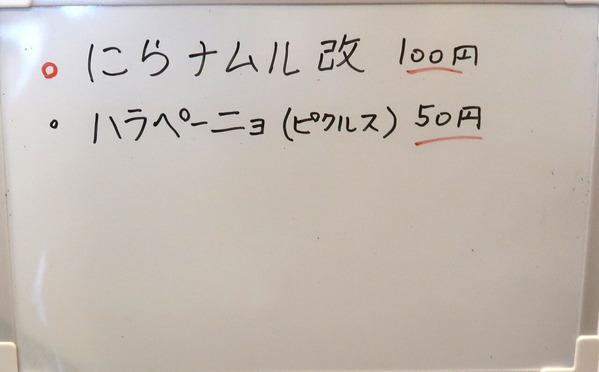 ○ にらナムル改 100円
・ ハラペーニョ(ピクルス) 50円